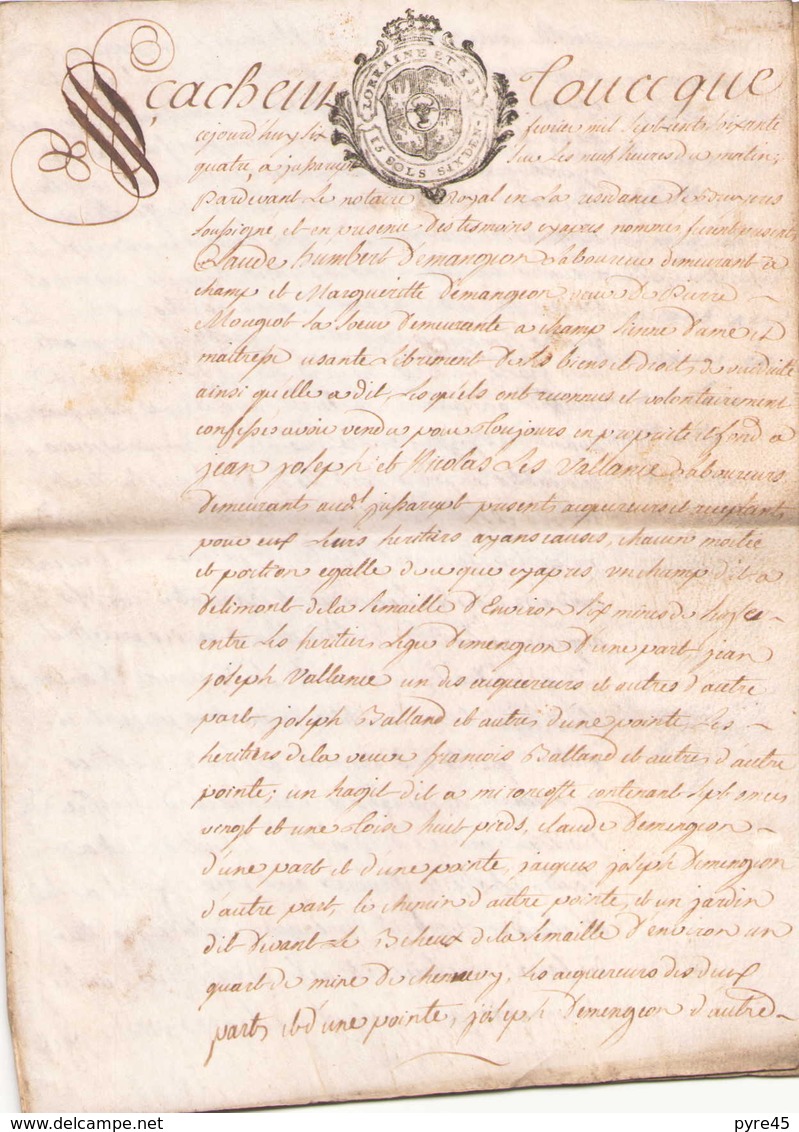 Sçachent tous que
LORRAINE ET BAR
15 SOLS SIX DEN.
cejourd'huy six fevrier mil sept cents soixante
quatre à jussarupt sur les neuf heures du matin;
Pardevant Le notaire Royal en La residance de Bruyeres
soussigné et en presence des tesmoins cyapres nommes furent presents
Claude humbert Demangeon Laboureur demeurant à
champ et Margueritte Demangeon veuve de Pierre
Mougeot sa soeur demeurante a champ fienne Dame et
maitresse usante Librement de ses biens et droits de viduité
ainsi quelle a dit, Lesquels ont reconnus et volontairement
confessés avoir vendu pour toujours en propriete et fond a
jean joseph et Nicolas Les Vallance Laboureurs
demeurants audt jussarupt presents acquereurs et acceptants
pour eux Leurs heritiers ayans causes, chacun moitié
et portion egalle de ce que cyapres un champ dit a
Delimont de la semaille D'Environ six mines de
entre Les heritiers Demengeon D'une part jean
joseph Vallance un des acquereurs et autres d'autre
part, joseph Balland et autres d'une pointe Les
heritiers de la veuve françois Balland et autres d'autre
pointe; un hagit dit a mironcoste contenant sept onces
vingt et une toise huit pieds, claude Demengeon
d'une part et d'une pointe, jacques joseph Demengeon
d'autre part, le chemin d'autre pointe, et un jardin
dit Devant Le Beheux de la semaille D'environ un
quart de mine de chennevy, Les acquereurs des deux
parts et d'une pointe, joseph Demengeon d'autre
pyre45